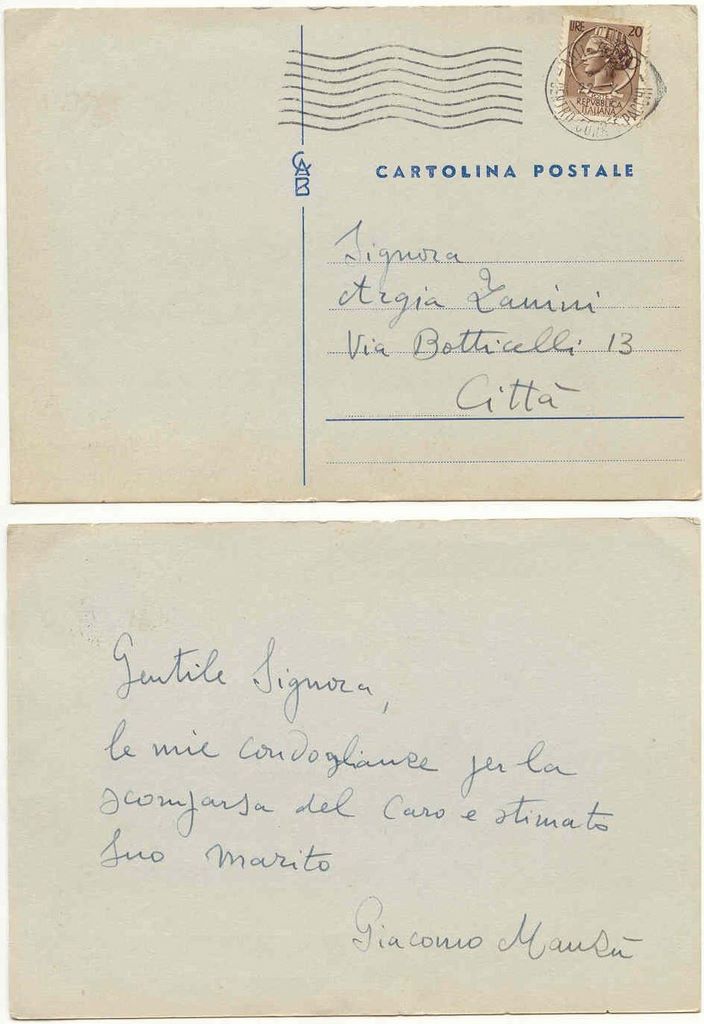 LIRE 20
REPVBBLICA
ITALIANA
CAB
CARTOLINA POSTALE
Signora
Argia Zanini
Via Botticelli 13
Città
Gentile Signora,
le mie condoglianze per la
scomparsa del caro e stimato
Suo marito
Giacomo Manzù